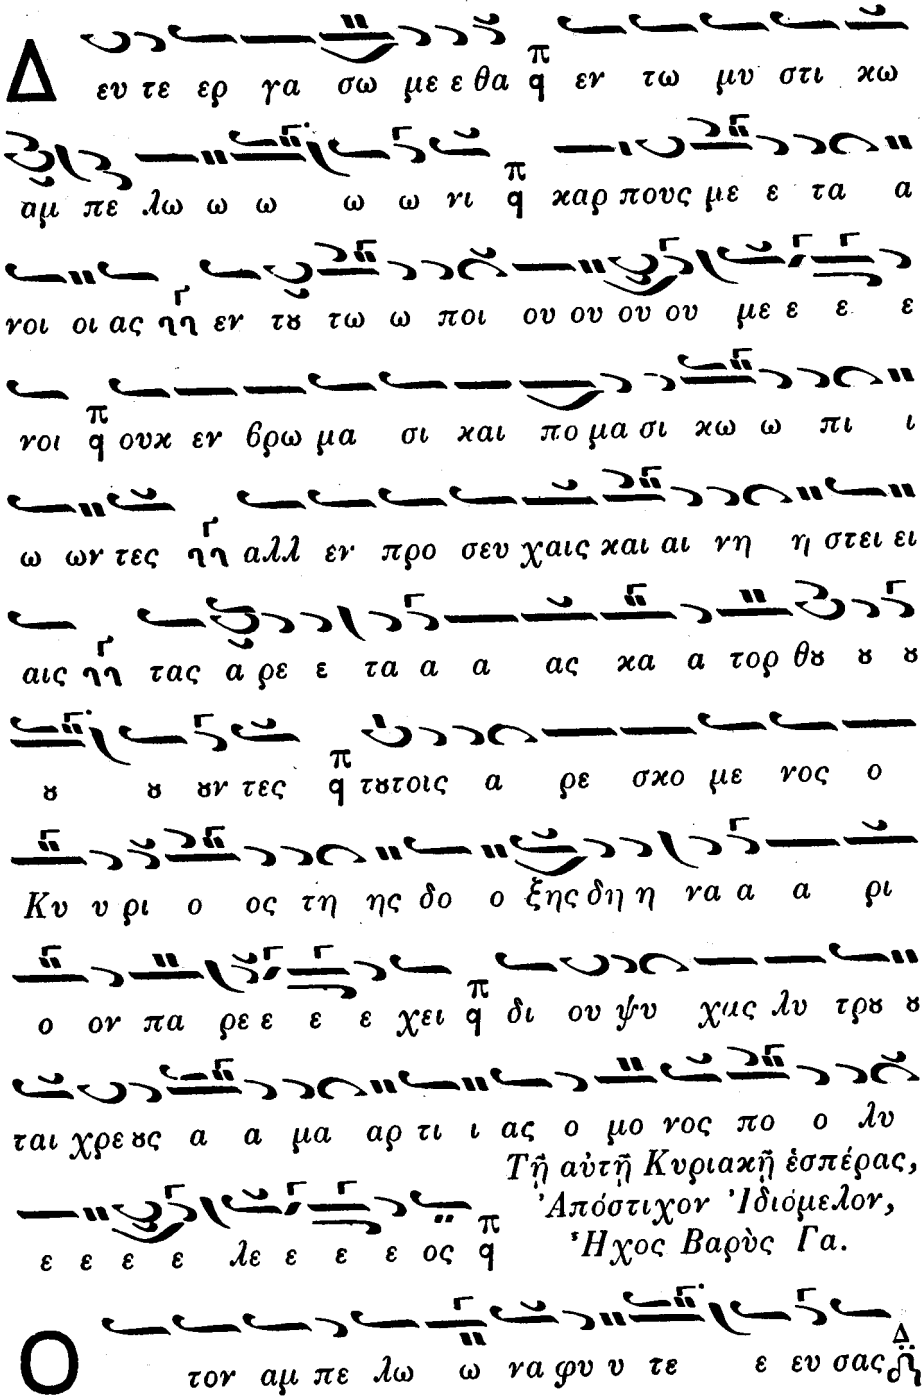 Δευ τε ερ γα σω με ε θα π q εν τω μυ στι κω
αμ πε λω ω ω ω ω νι π q καρ πους με ε τα α
νοι οι ας Γ εν τȣ τω ω ποι ου ου ου ου με ε ε ε
νοι π q ουκ εν βρω μα σι και πο μα σι κω ω πι ι
ω ων τες Γ αλλ εν προ σευ χαις και αι νη η στει ει
αις Γ τας α ρε ε τα α α ας κα α τορ θȣ ȣ ȣ
ȣ ȣ ȣν τες π q τȣτοις α ρε σκο με νος ο
Κυ υ ρι ο ος τη ης δο ο ξης δη η να α α ρι
ο ον πα ρε ε ε ε χει π q δι ου ψυ χας λυ τρȣ ȣ
ται χρεȣς α α μα αρ τι ι ας ο μο νος πο ο λυ
ε ε ε ε λε ε ε ε ος π q
Τῇ αὐτῇ Κυριακῇ ἑσπέρας,
Ἀπόστιχον Ἰδιόμελον,
Ἦχος Βαρὺς Γα.
Ο τον αμ πε λω ω να φυ υ τε ε ευ σας Δ